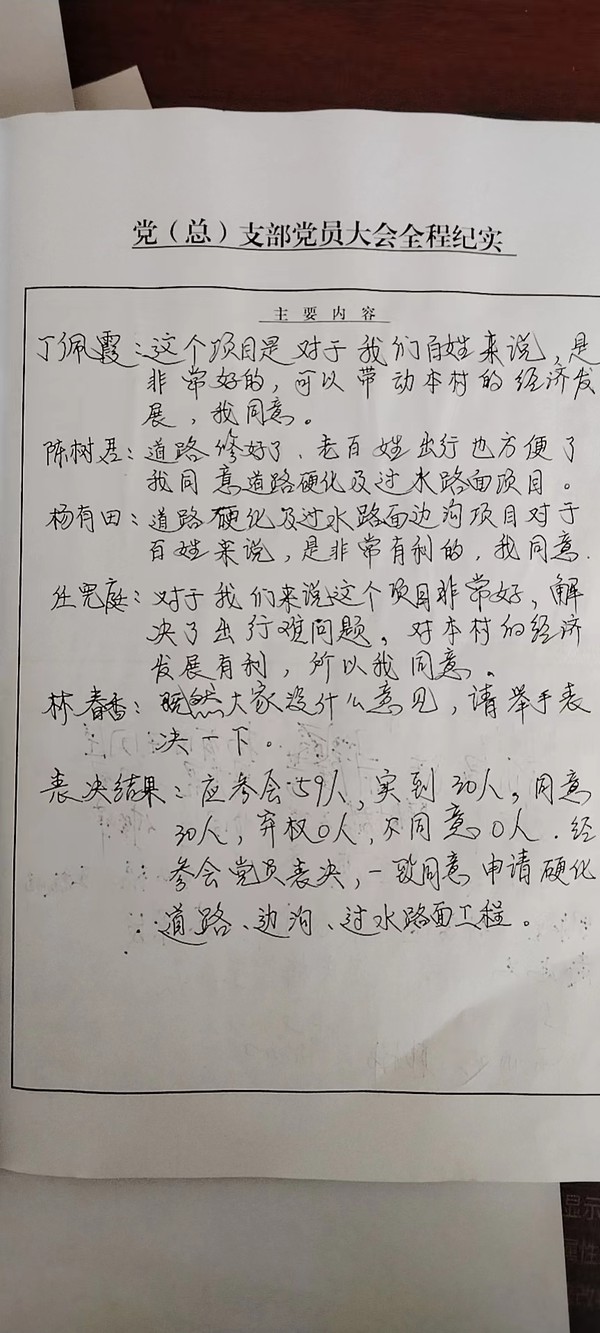 党（总）支部党员大会全程纪实
主要内容
丁佩霞：这个项目是对于我们百姓来说，是
非常好的，可以带动本村的经济发
展，我同意。
陈树君：道路修好了、老百姓出行也方便了
我同意道路硬化及过水路面项目。
杨有田：道路硬化及过水路面边沟项目对于
百姓来说，是非常有利的，我同意.
任宪庭：对于我们来说这个项目非常好，解
决了出行难问题，对本村的经济
发展有利，所以我同意。
林春香：既然大家没什么意见，请举手表
决一下。
表决结果：应参会59人，实到30人，同意
30人，弃权0人，不同意0人．经
参会党员表决，一致同意申请硬化
道路、边沟、过水路面工程。
显示
属性